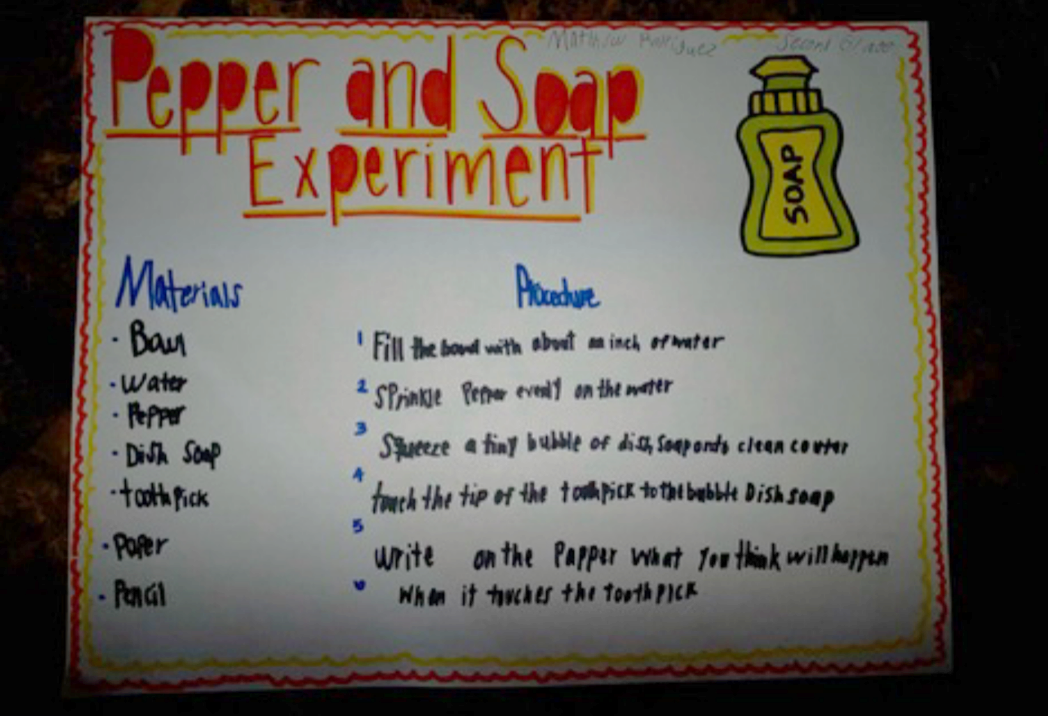 Matthew Rodriguez Second Grade
Pepper and Soap
Experiment
SOAP
Materials
· Bowl
· Water
· Pepper
· Dish Soap
· toothpick
· Paper
· Pencil
Procedure
1 Fill the bowl with about an inch of water
2 SPrinkle Pepper evenly on the water
3 Squeeze a tiny bubble of dish soap onto clean counter
4 touch the tip of the toothpick to the bubble Dish soap
5 Write on the Papper what you think will happen
6 when it touches the toothpick